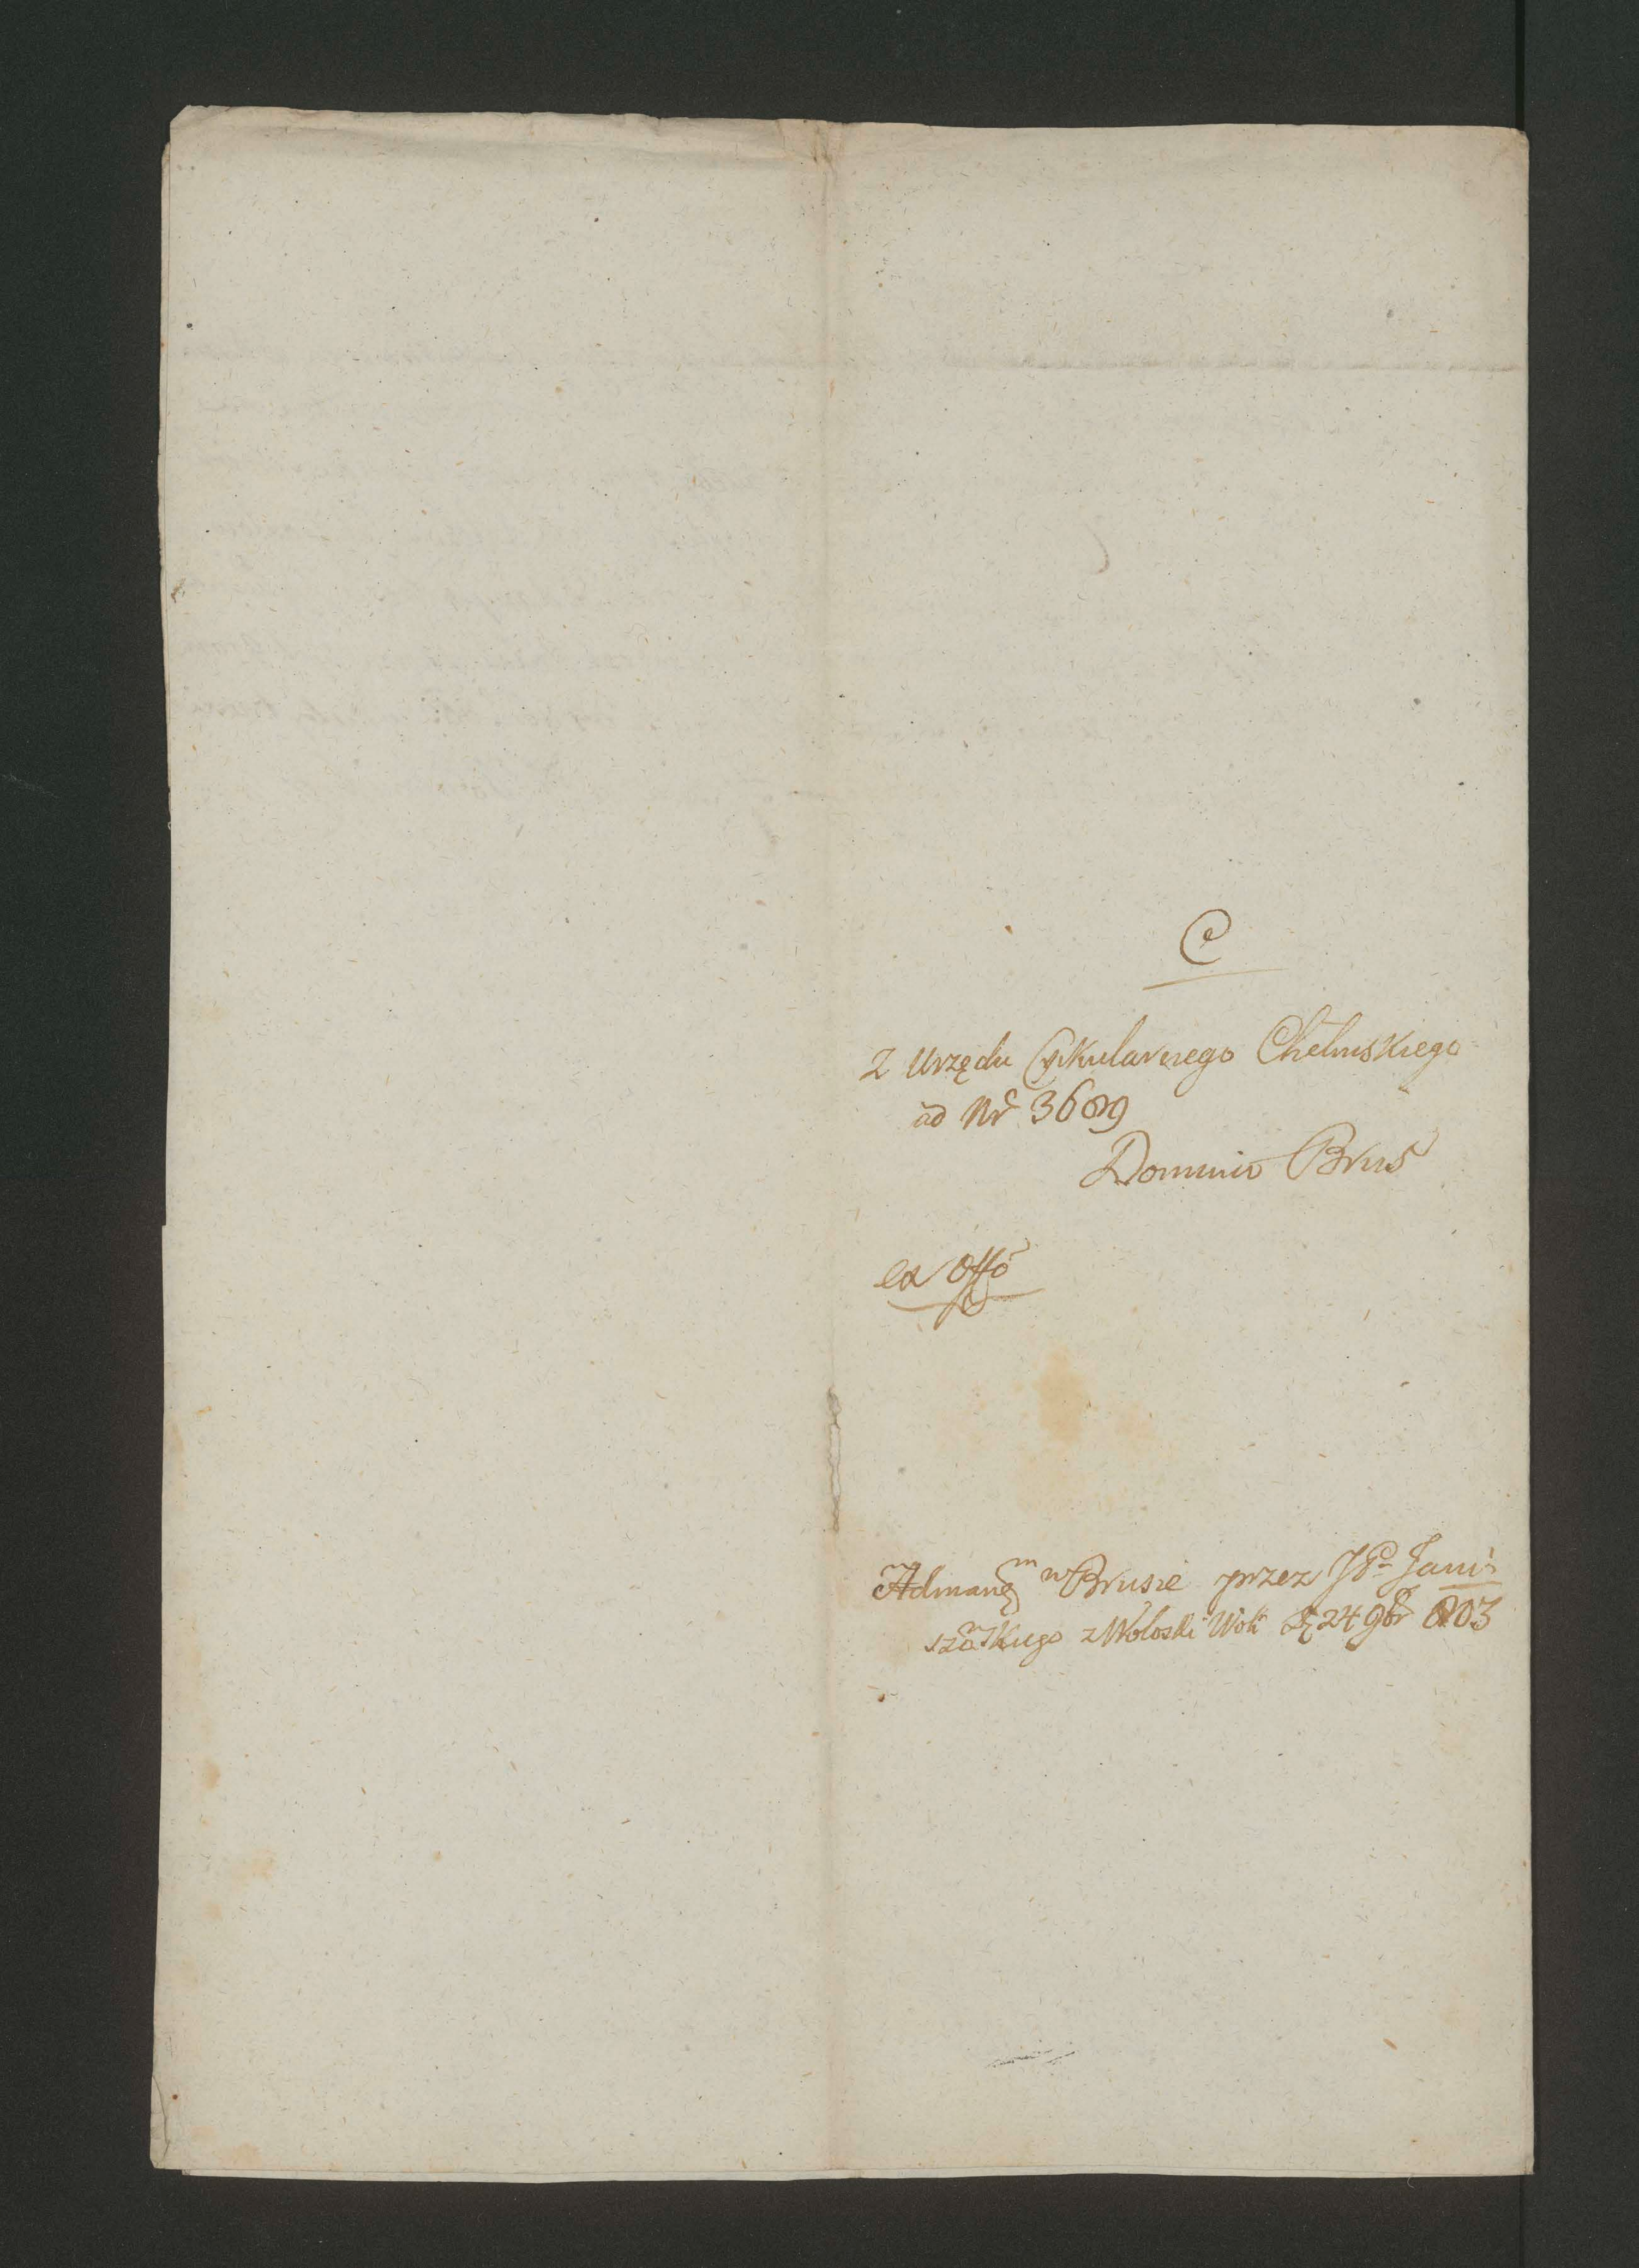 C
Z Urzędu Cyrkularnego Chełmskiego
ad Nr 3689
Dominio Brus
ex offo
w Brusie przez JP Jani-
szewskiego z Woloski Woli 24 9br 803